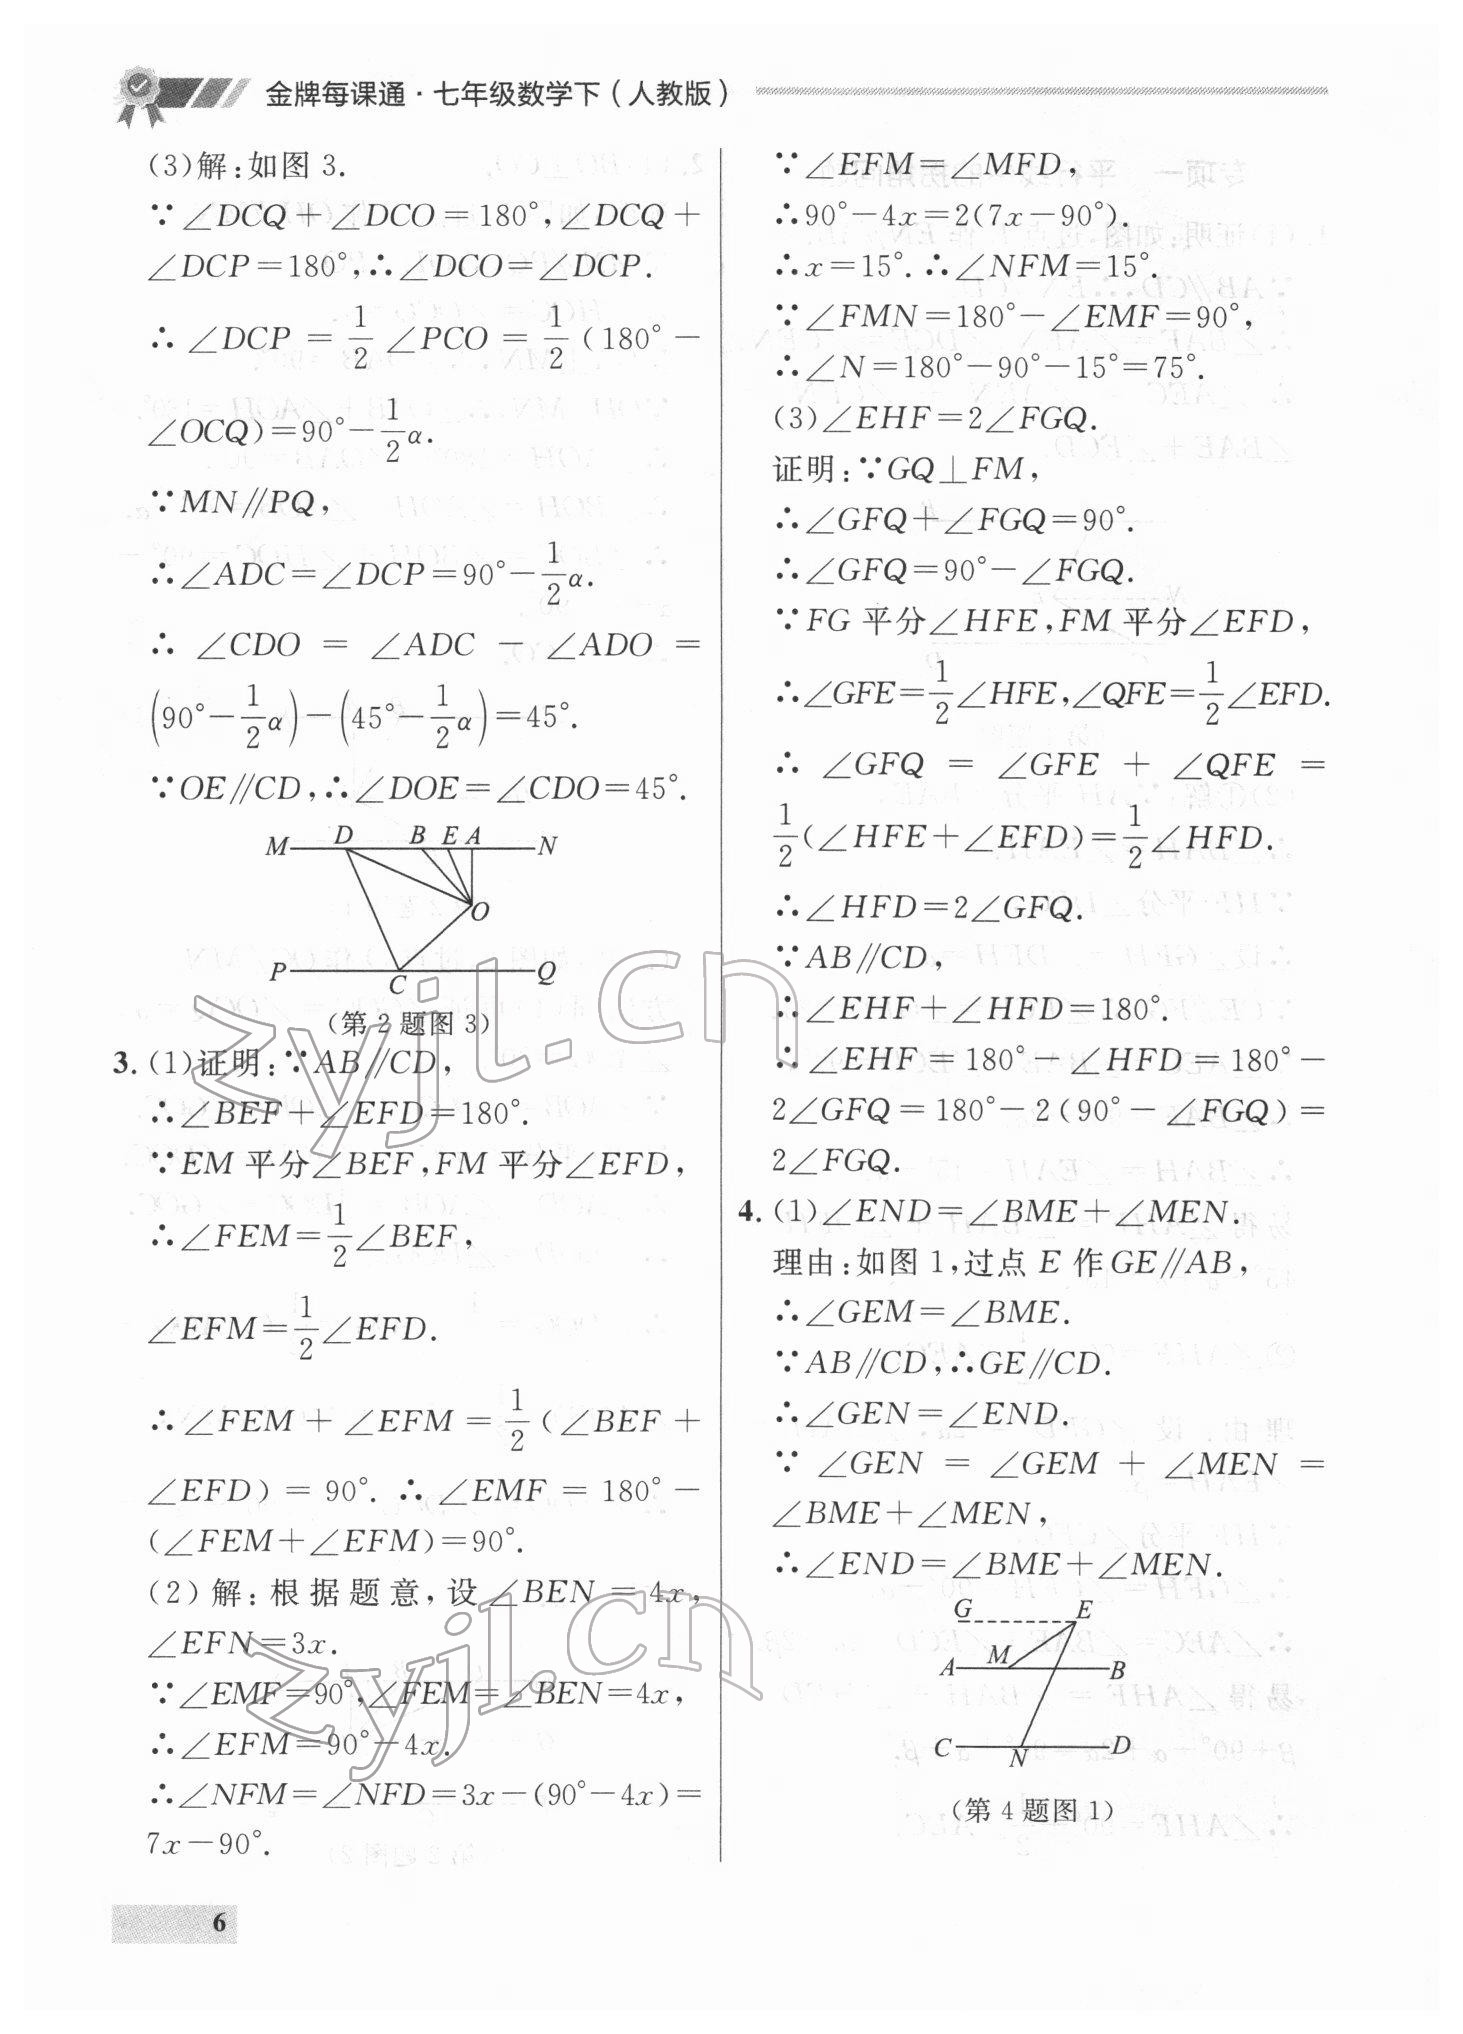 金牌每课通·七年级数学下(人教版)
(3)解:如图 3.
∵∠DCQ+∠DCO=180°,∠DCQ+
∠DCP=180°,∴∠DCO=∠DCP.
∴∠DCP=1/2∠PCO=1/2(180°-
∠OCQ)=90°-1/2α.
∵MN∥PQ,
∴∠ADC=∠DCP=90°-1/2α.
∴∠CDO=∠ADC-∠ADO=
(90°-1/2α)-(45°-1/2α)=45°.
∵OE∥CD,∴∠DOE=∠CDO=45°.
M D B E A N
O
P C Q
(第 2 题图 3)
3. (1)证明:∵AB∥CD,
∴∠BEF+∠EFD=180°.
∵EM 平分∠BEF,FM 平分∠EFD,
∴∠FEM=1/2∠BEF,
∠EFM=1/2∠EFD.
∴∠FEM+∠EFM=1/2(∠BEF+
∠EFD)=90°. ∴∠EMF=180°-
(∠FEM+∠EFM)=90°.
(2)解:根据题意,设∠BEN=4x,
∠EFN=3x.
∵∠EMF=90°,∠FEM=∠BEN=4x,
∴∠EFM=90°-4x.
∴∠NFM=∠NFD=3x-(90°-4x)=
7x-90°.
∵∠EFM=∠MFD,
∴90°-4x=2(7x-90°).
∴x=15°. ∴∠NFM=15°.
∵∠FMN=180°-∠EMF=90°,
∴∠N=180°-90°-15°=75°.
(3)∠EHF=2∠FGQ.
证明:∵GQ⊥FM,
∴∠GFQ+∠FGQ=90°.
∴∠GFQ=90°-∠FGQ.
∵FG 平分∠HFE,FM 平分∠EFD,
∴∠GFE=1/2∠HFE,∠QFE=1/2∠EFD.
∴∠GFQ=∠GFE+∠QFE=
1/2(∠HFE+∠EFD)=1/2∠HFD.
∴∠HFD=2∠GFQ.
∵AB∥CD,
∴∠EHF+∠HFD=180°.
∴∠EHF=180°-∠HFD=180°-
2∠GFQ=180°-2(90°-∠FGQ)=
2∠FGQ.
4. (1)∠END=∠BME+∠MEN.
理由:如图 1,过点 E 作 GE∥AB,
∴∠GEM=∠BME.
∵AB∥CD,∴GE∥CD.
∴∠GEN=∠END.
∵∠GEN=∠GEM+∠MEN=
∠BME+∠MEN,
∴∠END=∠BME+∠MEN.
G E
A M B
C N D
(第 4 题图 1)
6
zyjl.cn
zyjl.cn